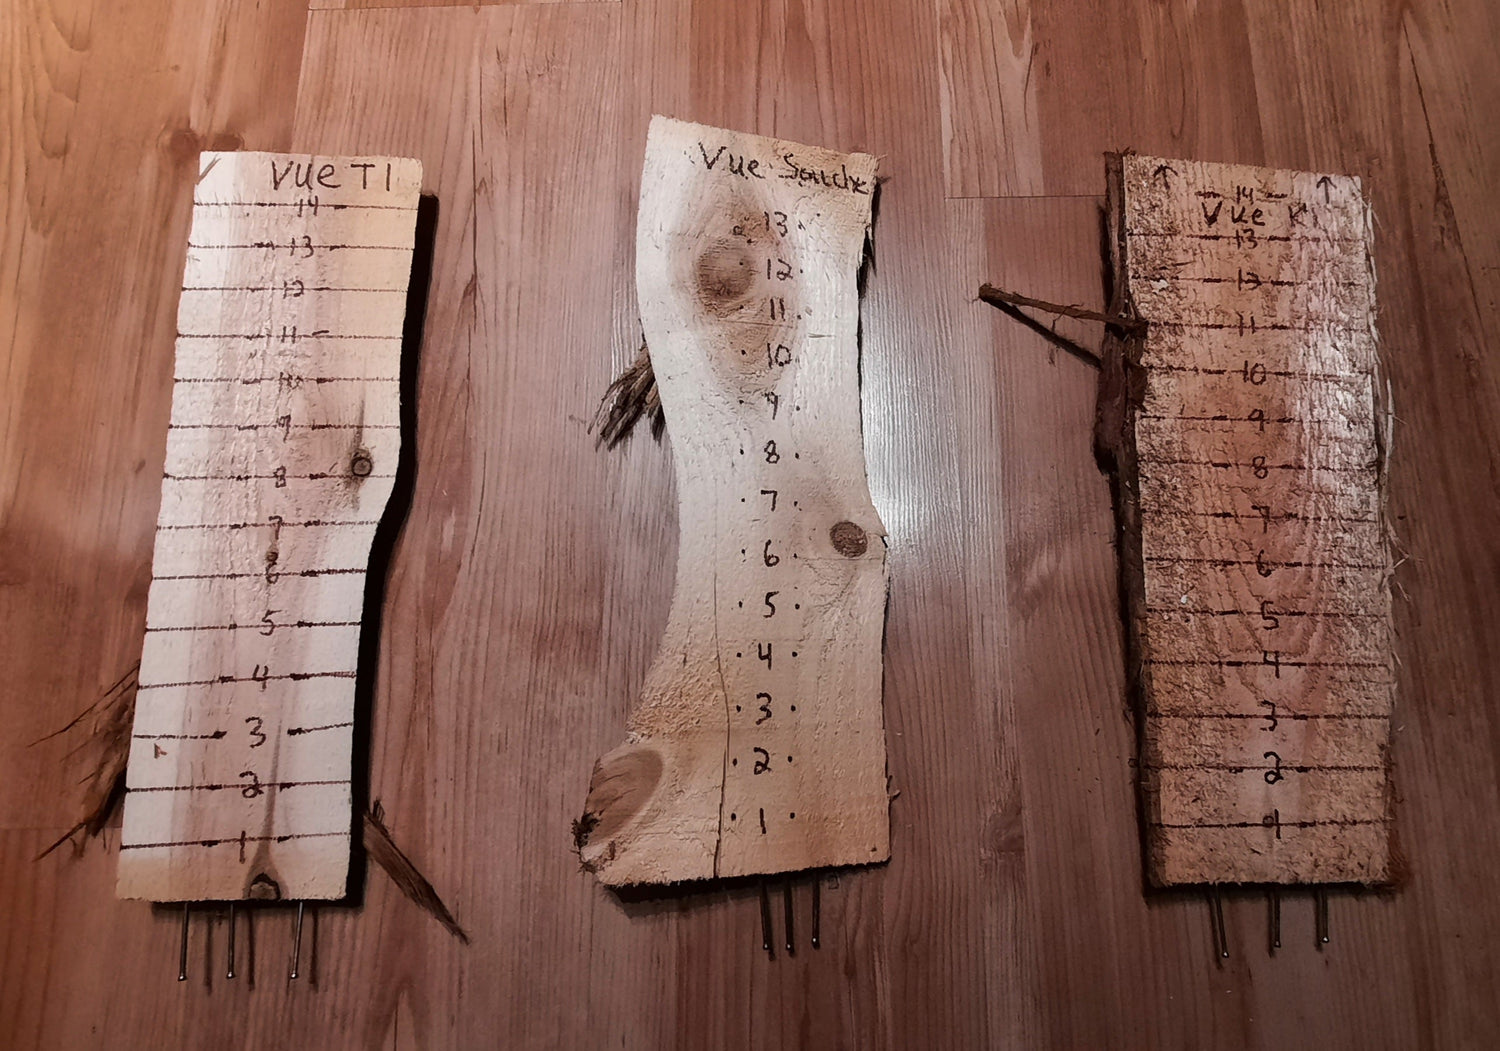 Vue T1
14
13
12
11
10
9
8
7
6
5
4
3
2
1
Vue Souche
13
12
11
10
9
8
7
6
5
4
3
2
1
14
Vue
13
13
11
10
9
8
7
6
5
4
3
2